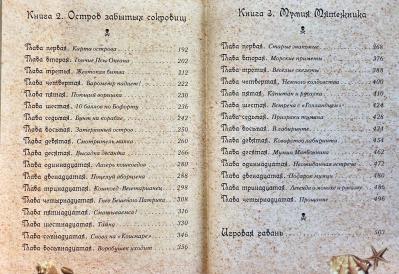 Книга 2. Остров забытых сокровищ
Глава первая. Карта острова 192
Глава вторая. Гонщик Пена Океана 202
Глава третья. Жестокая битва 212
Глава четвертая. Барометр падает! 222
Глава пятая. Поющая воронка 230
Глава шестая. 10 баллов по Бофорту 236
Глава седьмая. Бунт на корабле 242
Глава восьмая. Затерянный остров 250
Глава девятая. Смотритель маяка 260
Глава десятая. Высадка десанта 266
Глава одиннадцатая. Лагерь людоедов 280
Глава двенадцатая. Поцелуй аборигена 288
Глава тринадцатая. Людоед-Вегетарианец 298
Глава четырнадцатая. Гнев Бешеного Патрика 308
Глава пятнадцатая. Сматываемся! 316
Глава шестнадцатая. Тайну 330
Глава семнадцатая. Снова на «Кошмаре» 346
Глава восемнадцатая. Воробушек уходит 356
Книга 3. Мумия Мятежника
Глава первая. Старые знакомые 368
Глава вторая. Морские приметы 376
Глава третья. Веселые скелеты 388
Глава четвертая. Немного колдовства 400
Глава пятая. Капитан и русалка 410
Глава шестая. Встреча с «Голландцем» 424
Глава седьмая. Призраки тумана 434
Глава восьмая. В лабиринте 434
Глава девятая. Кошмары лабиринта 454
Глава десятая. Мумия Мятежника 462
Глава одиннадцатая. Неожиданная встреча 472
Глава двенадцатая. Подарок мумии 480
Глава тринадцатая. Легенда о моряке и русалке 486
Глава четырнадцатая. Прощание 496
Игровая гавань 503